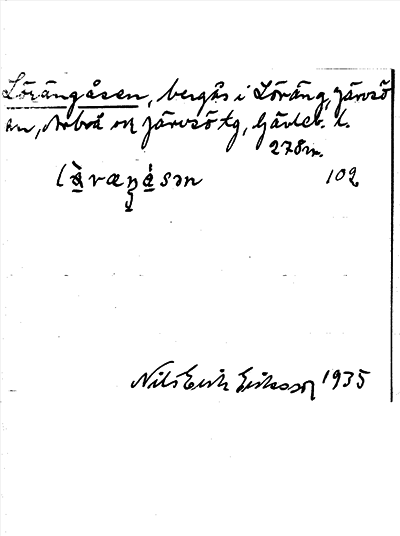 Lörängåsen, bergås i Löräng, Järvsö
sn, Arbrå och Järvsö tg, Gävleb. l.
278 m.
102
Nils Erik Eriksson 1935